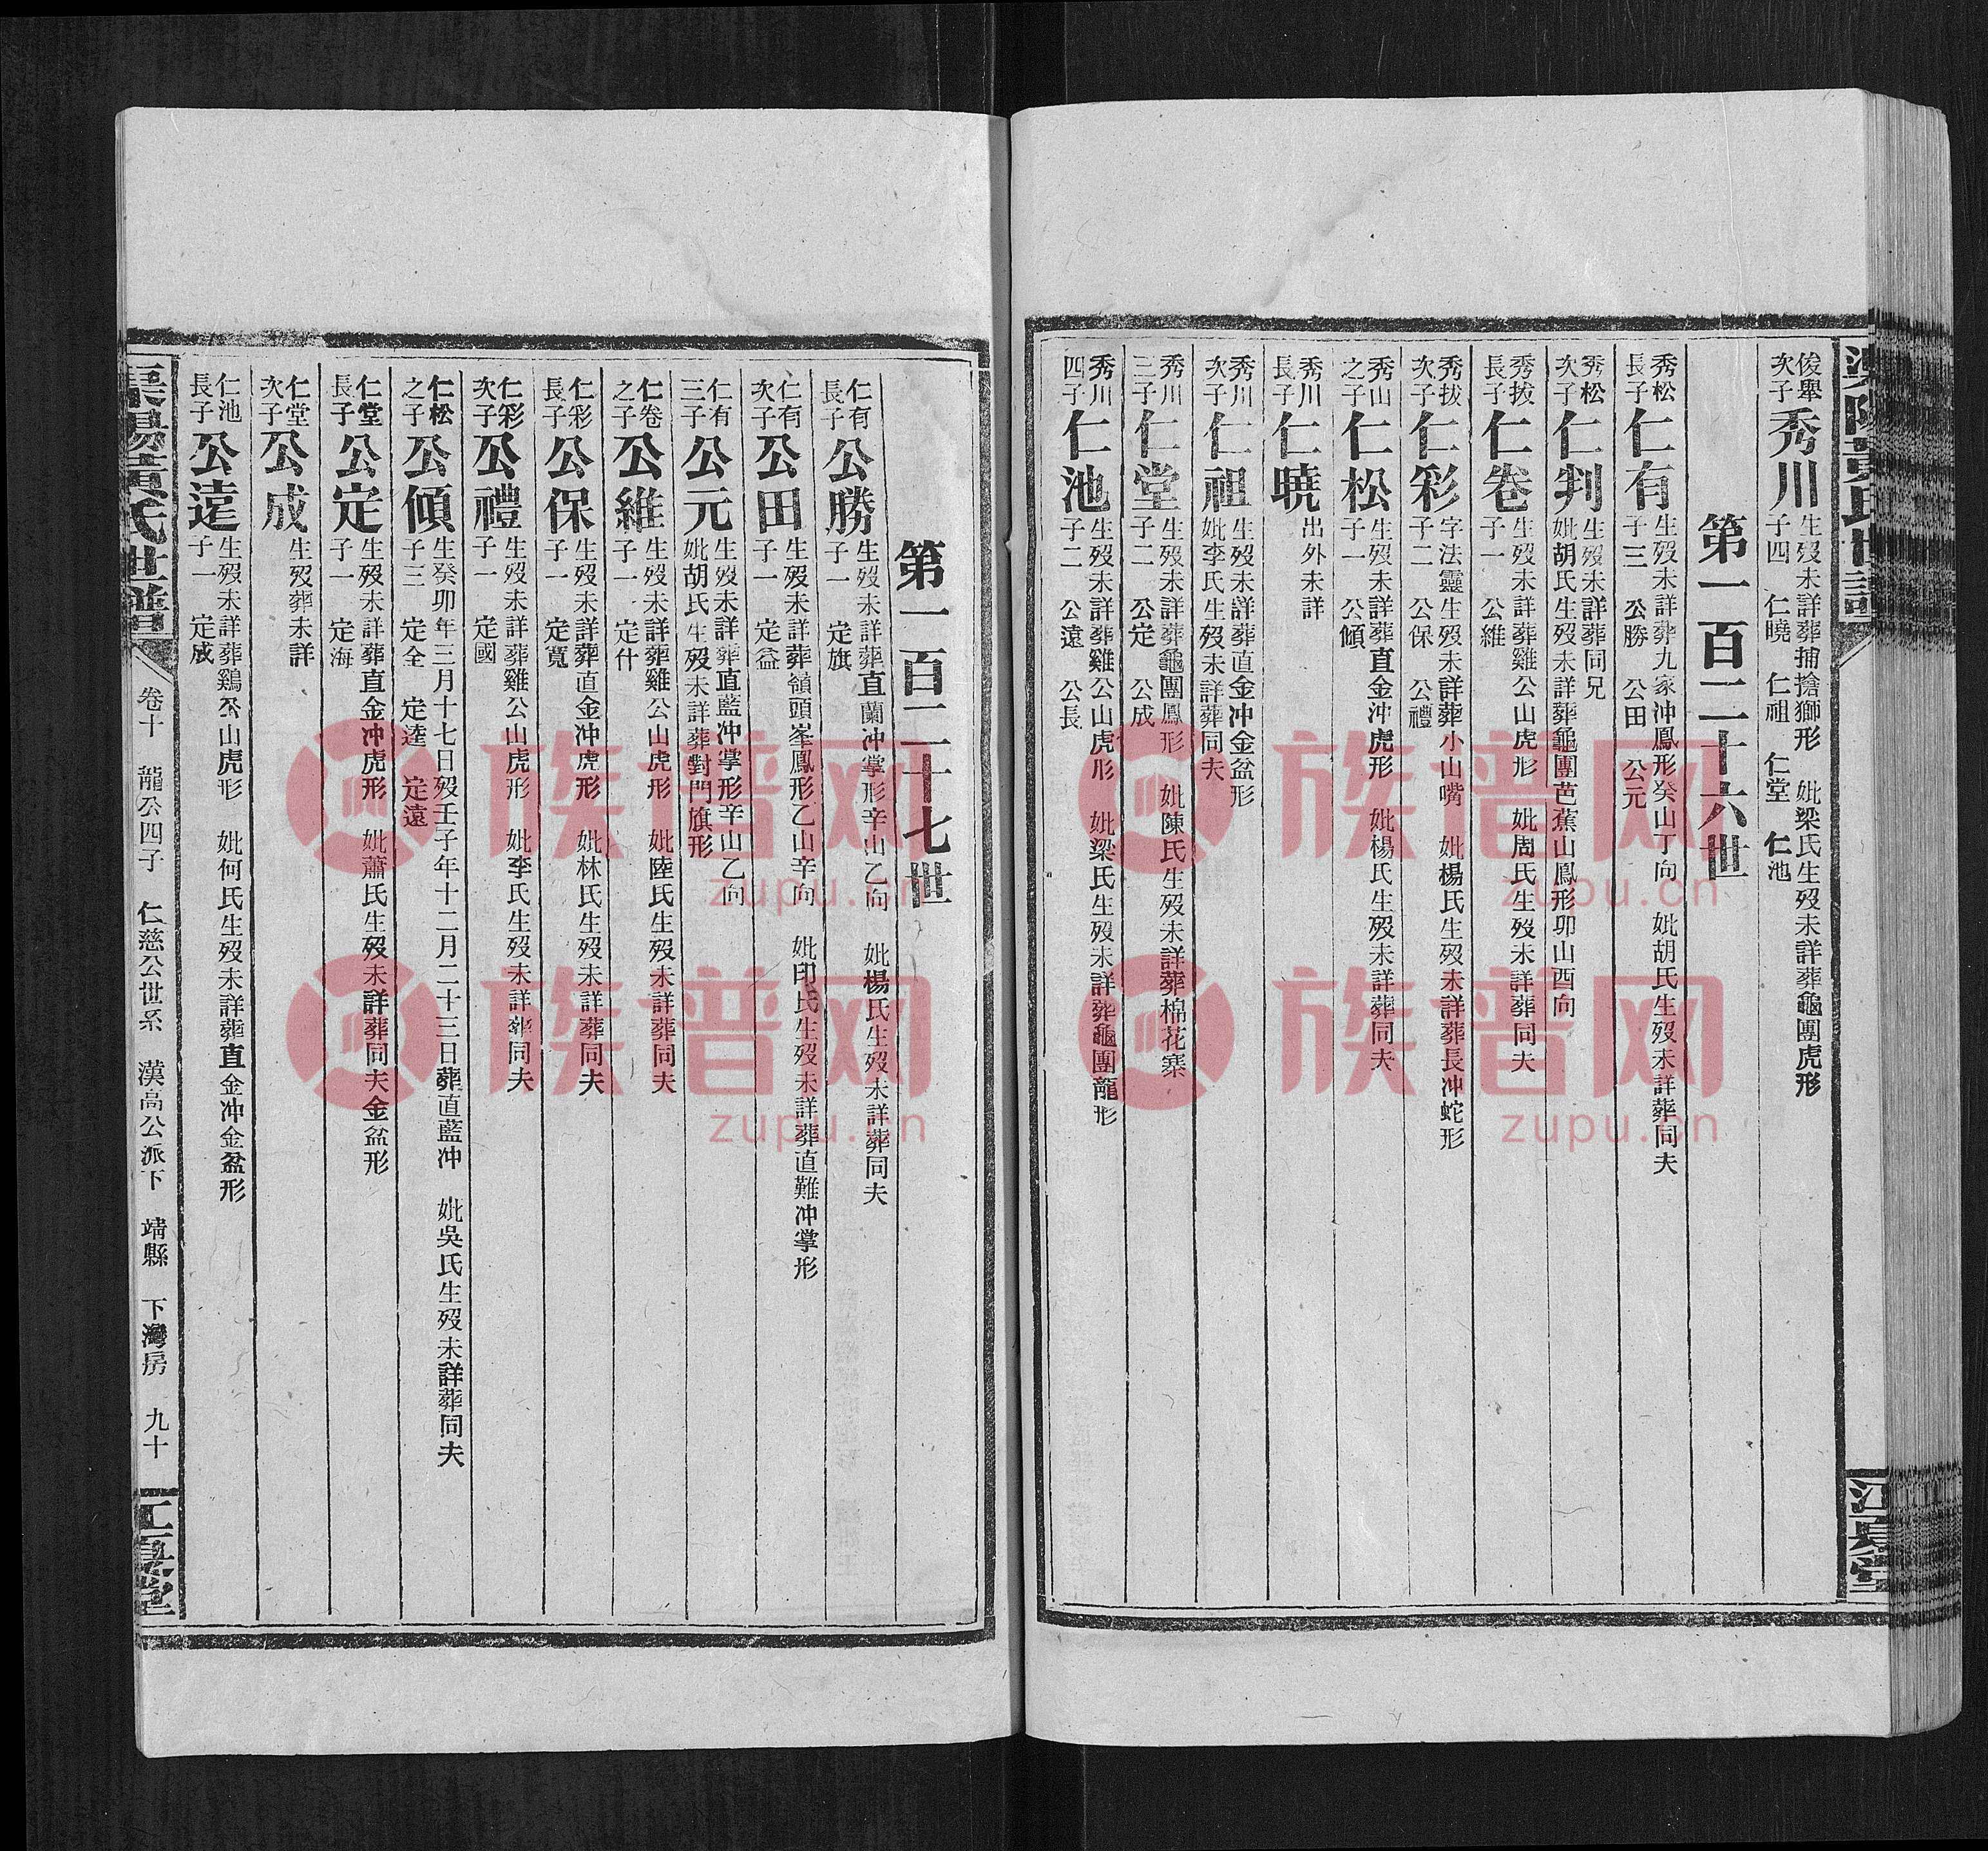 俊舉次子 秀川 生歿未詳葬捕擒獅形 妣梁氏生歿未詳葬龜團虎形
子四 仁曉 仁祖 仁堂 仁池
第一百二十六世
秀松長子 仁有 生歿未詳葬九家沖鳳形癸山丁向 妣胡氏生歿未詳葬同夫
子三 公勝 公田 公元
秀松次子 仁判 生歿未詳葬同兄
妣胡氏生歿未詳葬龜團芭蕉山鳳形卯山酉向
秀拔長子 仁卷 生歿未詳葬雞公山虎形 妣周氏生歿未詳葬同夫
子一 公維
秀拔次子 仁彩 字法靈生歿未詳葬小山嘴 妣楊氏生歿未詳葬長沖蛇形
子二 公保 公禮
秀山之子 仁松 生歿未詳葬直金沖虎形 妣楊氏生歿未詳葬同夫
子一 公傾
秀川長子 仁曉 出外未詳
秀川次子 仁祖 生歿未詳葬直金冲金盆形
妣李氏生歿未詳葬同夫
秀川三子 仁堂 生歿未詳葬龜團鳳形 妣陳氏生歿未詳葬棉花寨
子二 公定 公成
秀川四子 仁池 生歿未詳葬雞公山虎形 妣梁氏生歿未詳葬龜團龍形
子二 公遠 公長
江夏堂
第一百二十七世
仁有長子 公勝 生歿未詳葬直蘭冲掌形辛山乙向 妣楊氏生歿未詳葬同夫
子一 定旗
仁有次子 公田 生歿未詳葬嶺頭峯鳳形乙山辛向 妣印氏生歿未詳葬直難冲掌形
子一 定益
仁有三子 公元 生歿未詳葬直藍冲掌形辛山乙向
妣胡氏生歿未詳葬對門旗形
仁卷之子 公維 生歿未詳葬雞公山虎形 妣陸氏生歿未詳葬同夫
子一 定什
仁彩長子 公保 生歿未詳葬直金冲虎形 妣林氏生歿未詳葬同夫
子一 定寬
仁彩次子 公禮 生歿未詳葬雞公山虎形 妣李氏生歿未詳葬同夫
子一 定國
仁松之子 公傾 生癸卯年三月十七日歿壬子年十二月二十三日葬直藍冲 妣吳氏生歿未詳葬同夫
子三 定全 定逵 定遠
仁堂長子 公定 生歿未詳葬直金冲虎形 妣蕭氏生歿未詳葬同夫金盆形
子一 定海
仁堂次子 公成 生歿葬未詳
仁池長子 公遠 生歿未詳葬鷄公山虎形 妣何氏生歿未詳葬直金冲金盆形
子一 定成
黃氏世譜 卷十 龍公四子 仁慈公世系 漢高公派下 靖縣 下灣房 九十 江夏堂
族普网
zupu.cn
族普网
zupu.cn
族普网
zupu.cn
族普网
zupu.cn